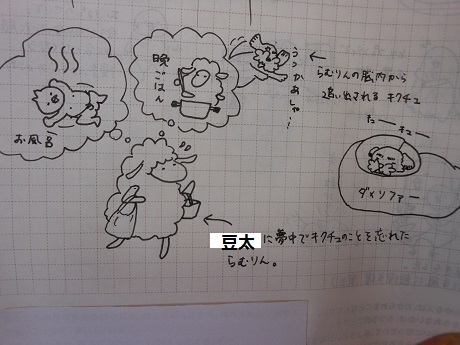 お風呂
晩ごはん
うっかあしゃー
らむりんの脳内から
追い出されるキクチュ
チュー
チュー
ダメソファー
豆太に夢中でキクチュのことを忘れた
らむりん。